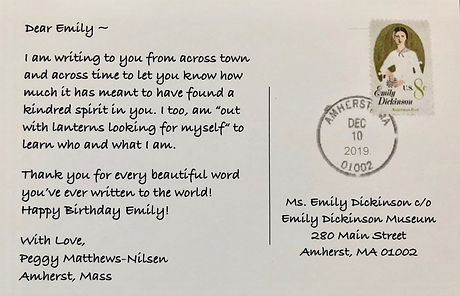 Dear Emily ~
I am writing to you from across town
and across time to let you know how
much it has meant to have found a
kindred spirit in you. I too, am "out
with lanterns looking for myself" to
learn who and what I am.
Thank you for every beautiful word
you've ever written to the world!
Happy Birthday Emily!
With Love,
Peggy Matthews-Nilsen
Amherst, Mass
U.S. 8¢
Emily
Dickinson
American Poet
AMHERST, MA
DEC
10
2019.
01002
Ms. Emily Dickinson c/o
Emily Dickinson Museum
280 Main Street
Amherst, MA 01002